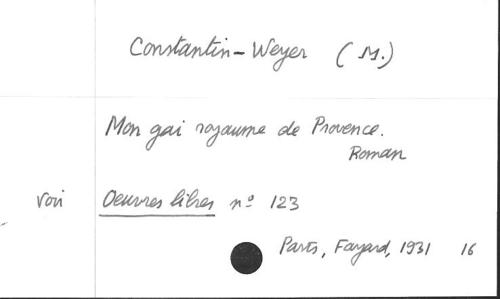 Constantin-Weyer (M.)
Mon gai royaume de Provence.
Roman
voir Oeuvres libres nº 123
Paris, Fayard, 1931 16